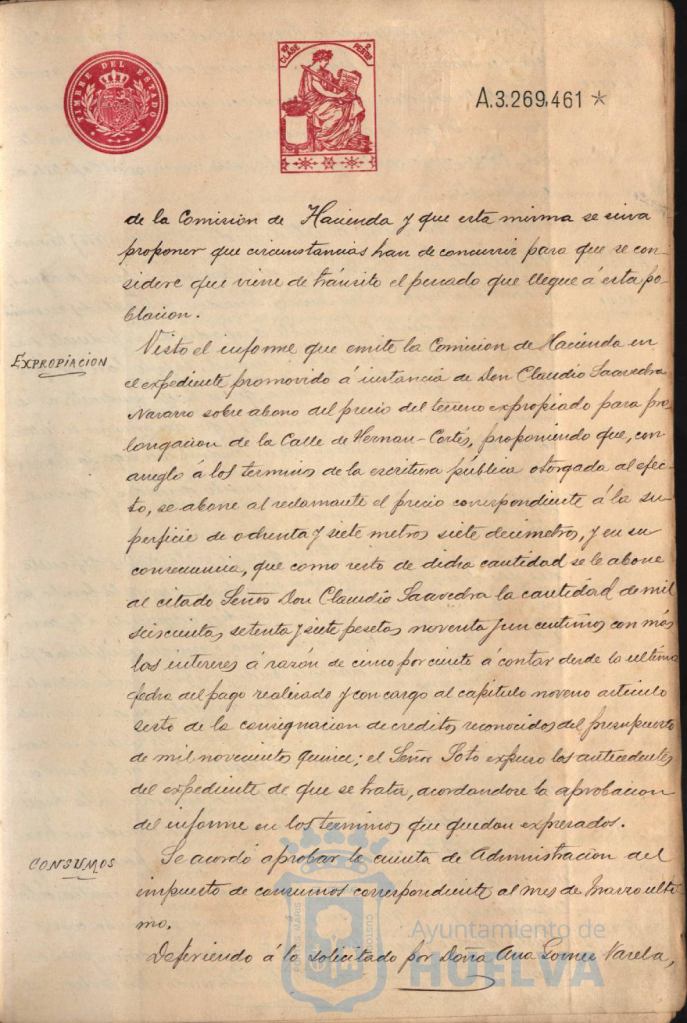 TIMBRE DEL ESTADO
10ª CLASE
2 PESETAS
A.3.269,461 *
de la Comision de Hacienda y que esta misma se sirva
proponer que circunstancias han de concurrir para que se con-
sidere que viene de tránsito el penado que llegue á esta po-
blacion.
EXPROPIACION
Visto el informe que emite la Comision de Hacienda en
el expediente promovido á instancia de Don Claudio Saavedra
Navarro sobre abono del precio del terreno expropiado para pro-
longacion de la Calle de Hernan-Cortés, proponiendo que, con
arreglo á los terminos de la escritura pública otorgada al efec-
to, se abone al reclamante el precio correspondiente á la su-
perficie de ochenta y siete metros siete decimetros, y en su
consecuencia, que como resto de dicha cantidad se le abone
al citado Señor Don Claudio Saavedra la cantidad de mil
seiscientas setenta y siete pesetas noventa y un centimos con más
los intereses á razón de cinco por ciento á contar desde la ultima
fecha del pago realizado y con cargo al capitulo noveno articulo
sexto de la consignacion de creditos reconocidos del presupuesto
de mil novecientos quince; el Señor Soto expuso los antecedentes
del expediente de que se trata, acordandose la aprobacion
del informe en los terminos que quedan expresados.
CONSUMOS
Se acordó aprobar la cuenta de Administracion del
impuesto de consumos correspondiente al mes de Marzo ulti-
mo.
Defiriendo á lo solicitado por Doña Ana Gomez Varela,
Ayuntamiento de
HUELVA